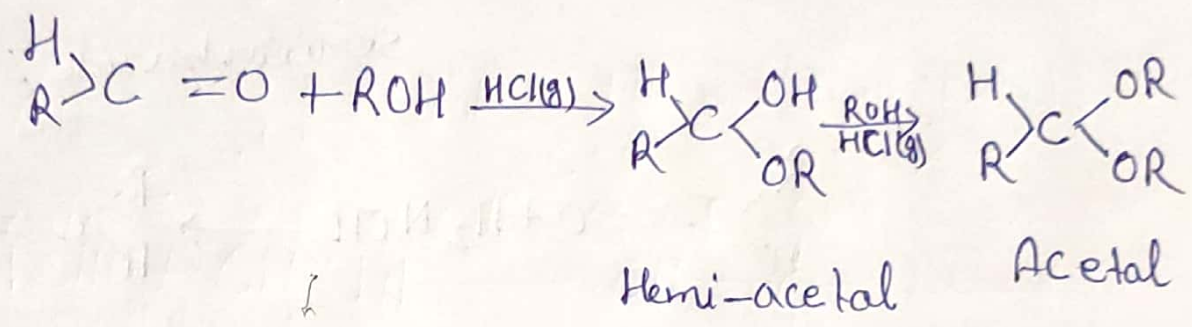 H
R >C =O + ROH HCl(g) → H
R >C< OH
OR ROH
HCl(g) → H
R >C< OR
OR
Hemi-acetal Acetal